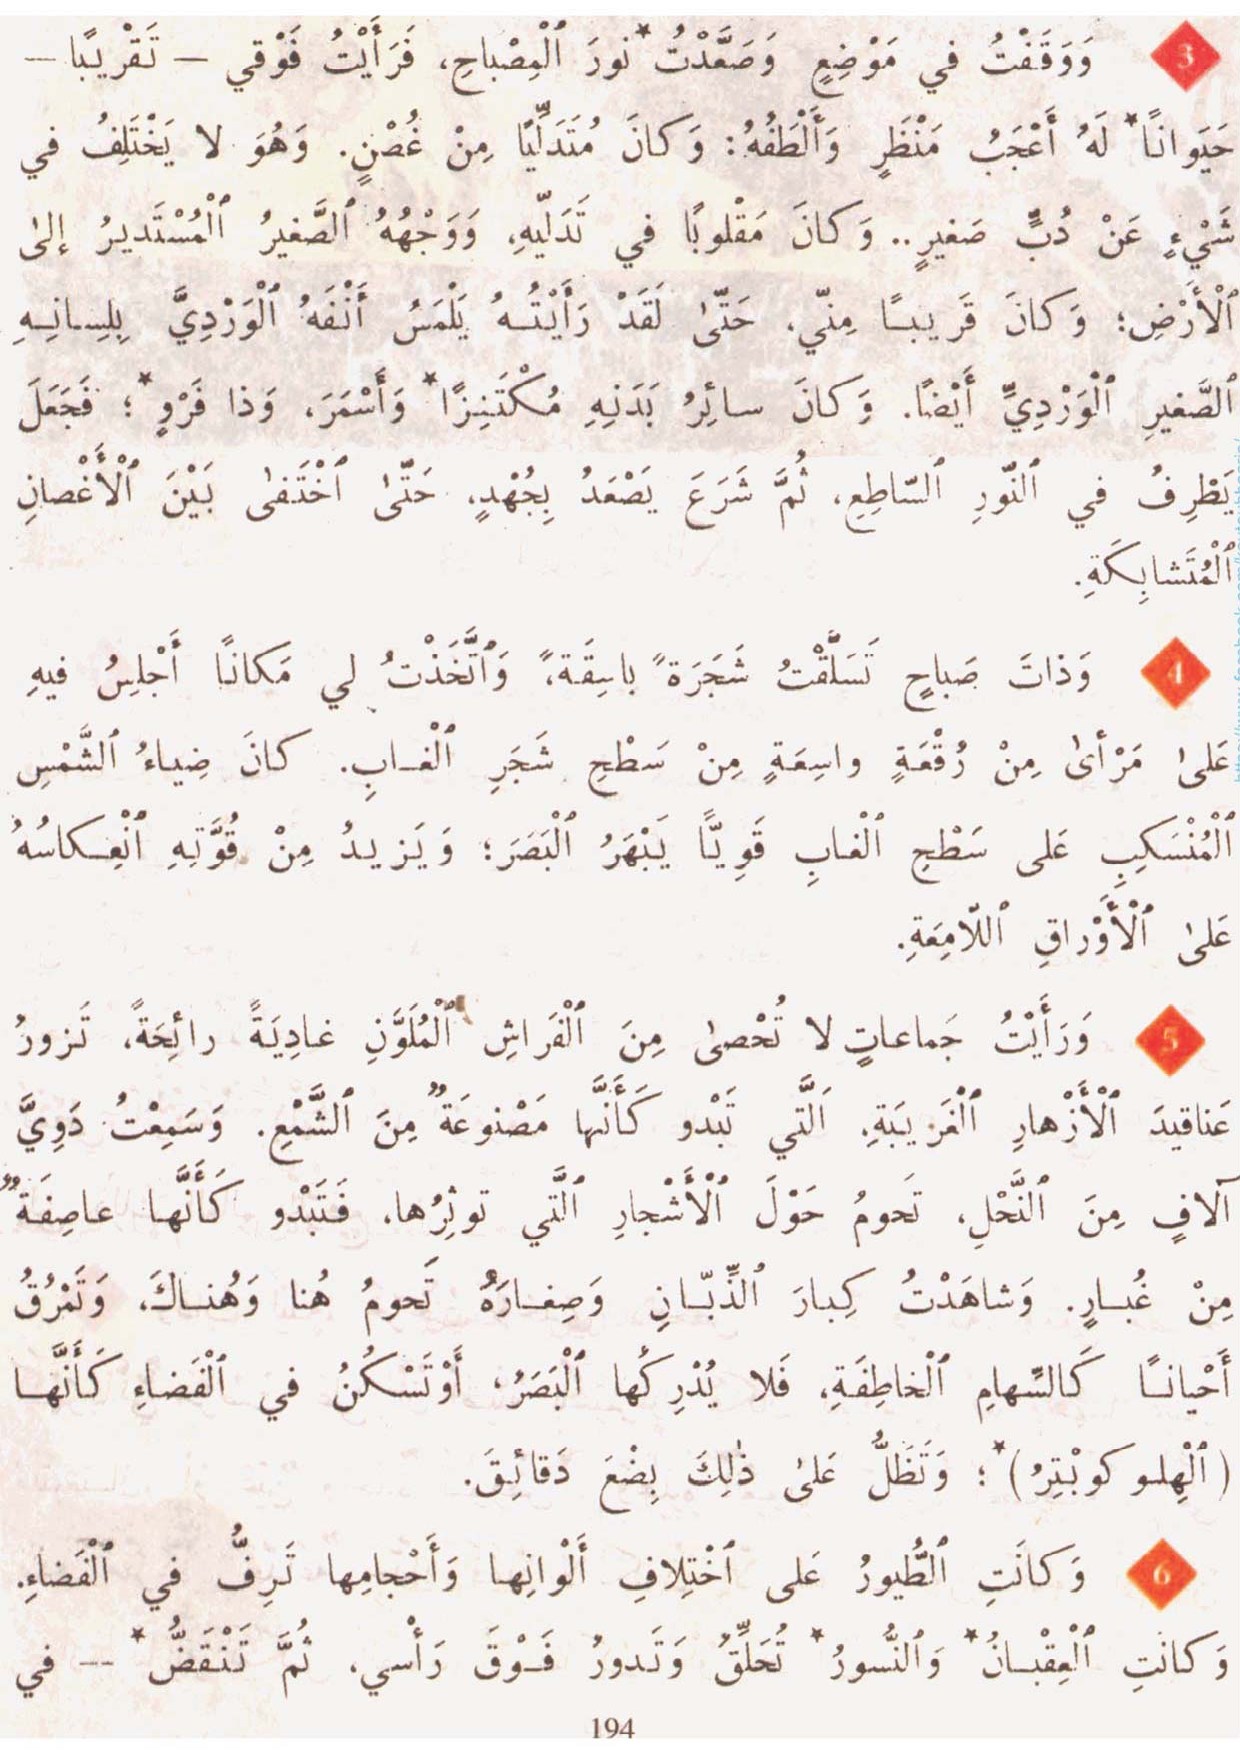 3 وَوَقَفْتُ في مَوْضِعٍ وَصَعَّدْتُ* نورَ ٱلْمِصْباحِ، فَرَأَيْتُ فَوْقي – تَقْريبًا –
حَيَوانًا* لَهُ أَعْجَبُ مَنْظَرٍ وَأَلْطَفُهُ: وَكانَ مُتَدَلِّيًا مِنْ غُصْنٍ. وَهُوَ لا يَخْتَلِفُ في
شَيْءٍ عَنْ دُبٍّ صَغيرٍ.. وَكانَ مَقْلوبًا في تَدَلّيهِ، وَوَجْهُهُ ٱلصَّغيرُ ٱلْمُسْتَديرُ إلىٰ
ٱلْأَرْضِ؛ وَكانَ قَريبًا مِنّي، حَتّىٰ لَقَدْ رَأَيْتُهُ يَلْمَسُ أَنْفَهُ ٱلْوَرْدِيَّ بِلِسانِهِ
ٱلصَّغيرِ ٱلْوَرْدِيِّ أَيْضًا. وَكانَ سائِرُ بَدَنِهِ مُكْتَنِزًا* وَأَسْمَرَ، وَذا فَرْوٍ*؛ فَجَعَلَ
يَطْرِفُ في ٱلنّورِ ٱلسّاطِعِ، ثُمَّ شَرَعَ يَصْعَدُ بِجُهْدٍ، حَتّىٰ ٱخْتَفىٰ بَيْنَ ٱلْأَغْصانِ
ٱلْمُتَشابِكَةِ.
4 وَذاتَ صَباحٍ تَسَلَّقْتُ شَجَرَةً باسِقَةً، وَٱتَّخَذْتُ لي مَكانًا أَجْلِسُ فيهِ
عَلىٰ مَرْأىٰ مِنْ رُقْعَةٍ واسِعَةٍ مِنْ سَطْحِ شَجَرِ ٱلْغابِ. كانَ ضِياءُ ٱلشَّمْسِ
ٱلْمُنْسَكِبِ عَلى سَطْحِ ٱلْغابِ قَوِيًّا يَبْهَرُ ٱلْبَصَرَ؛ وَيَزيدُ مِنْ قُوَّتِهِ ٱنْعِكاسُهُ
عَلىٰ ٱلْأَوْراقِ ٱللّامِعَةِ.
5 وَرَأَيْتُ جَماعاتٍ لا تُحْصىٰ مِنَ ٱلْفَراشِ ٱلْمُلَوَّنِ غادِيَةً رائِحَةً، تَزورُ
عَناقيدَ ٱلْأَزْهارِ ٱلْغَريبَةِ. ٱلَّتي تَبْدو كَأَنَّها مَصْنوعَةٌ مِنَ ٱلشَّمْعِ. وَسَمِعْتُ دَوِيَّ
آلافٍ مِنَ ٱلنَّحْلِ، تَحومُ حَوْلَ ٱلْأَشْجارِ ٱلَّتي توثِرُها، فَتَبْدو كَأَنَّها عاصِفَةٌ
مِنْ غُبارٍ. وَشاهَدْتُ كِبارَ ٱلذِّبّانِ وَصِغارَهُ تَحومُ هُنا وَهُناكَ، وَتَمْرُقُ
أَحْيانًا كَالسِّهامِ ٱلْخاطِفَةِ، فَلا يُدْرِكُها ٱلْبَصَرُ، أَوْ تَسْكُنُ في ٱلْفَضاءِ كَأَنَّها
(ٱلْهِلوكوبْتِرُ)*؛ وَتَظَلُّ عَلىٰ ذٰلِكَ بِضْعَ دَقائِقَ.
6 وَكانَتِ ٱلطُّيورُ عَلى ٱخْتِلافِ أَلْوانِها وَأَحْجامِها تَرِفُّ في ٱلْفَضاءِ.
وَكانَتِ ٱلْعِقْبانُ* وَٱلنُّسورُ* تُحَلِّقُ وَتَدورُ فَوْقَ رَأْسي، ثُمَّ تَنْقَضُّ* -- في
194